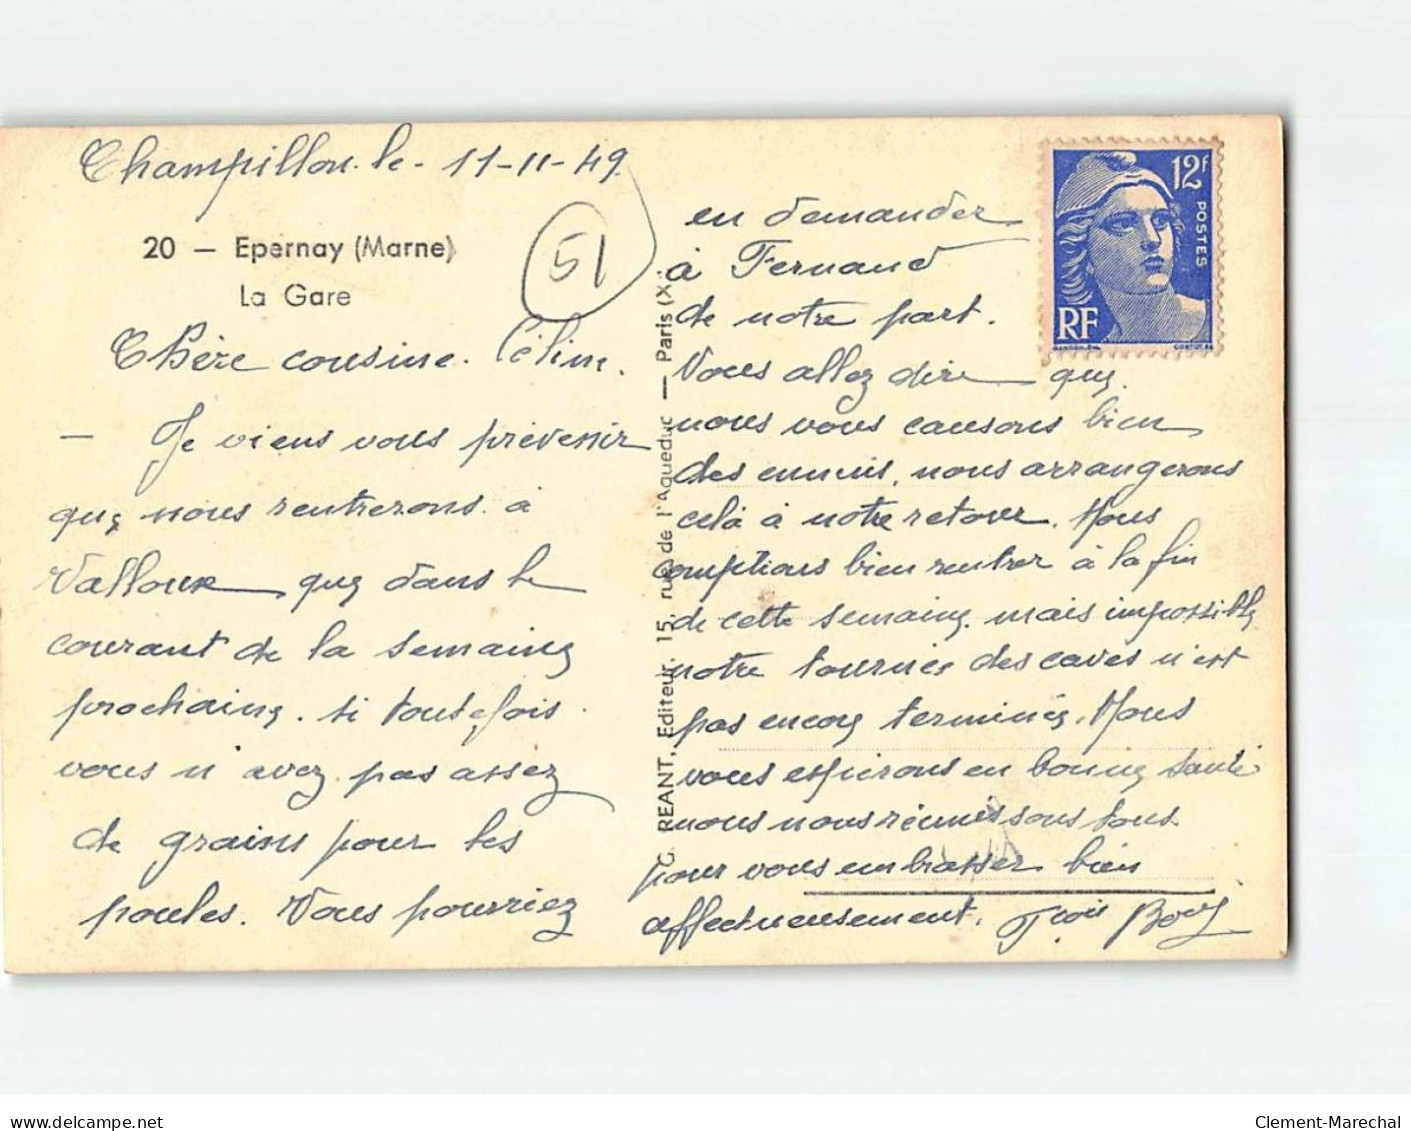 Champillon. le - 11-11-49
20 — Epernay (Marne)
La Gare
51
Chère cousine. Céline.
— Je viens vous prévenir
que nous rentrerons à
que dans le
courant de la semaine
prochaine. si toutefois
vous n'avez pas assez
de grains pour les
poules. Vous pourriez
en demander
à Fernand
de notre part.
Vous allez dire que
nous vous causons bien
des ennuis, nous arrangerons
cela à notre retour. Nous
comptions bien rentrer à la fin
de cette semaine mais impossible
notre tournée des caves n'est
pas encore terminée. Nous
vous espérons en bonne santé
nous nous réunissons tous
pour vous embrasser bien
affectueusement.
G. REANT, Editeur, 15, rue de l'Aqueduc — Paris (X.
12F
POSTES
RF
delcampe.net
Clement-Marechal